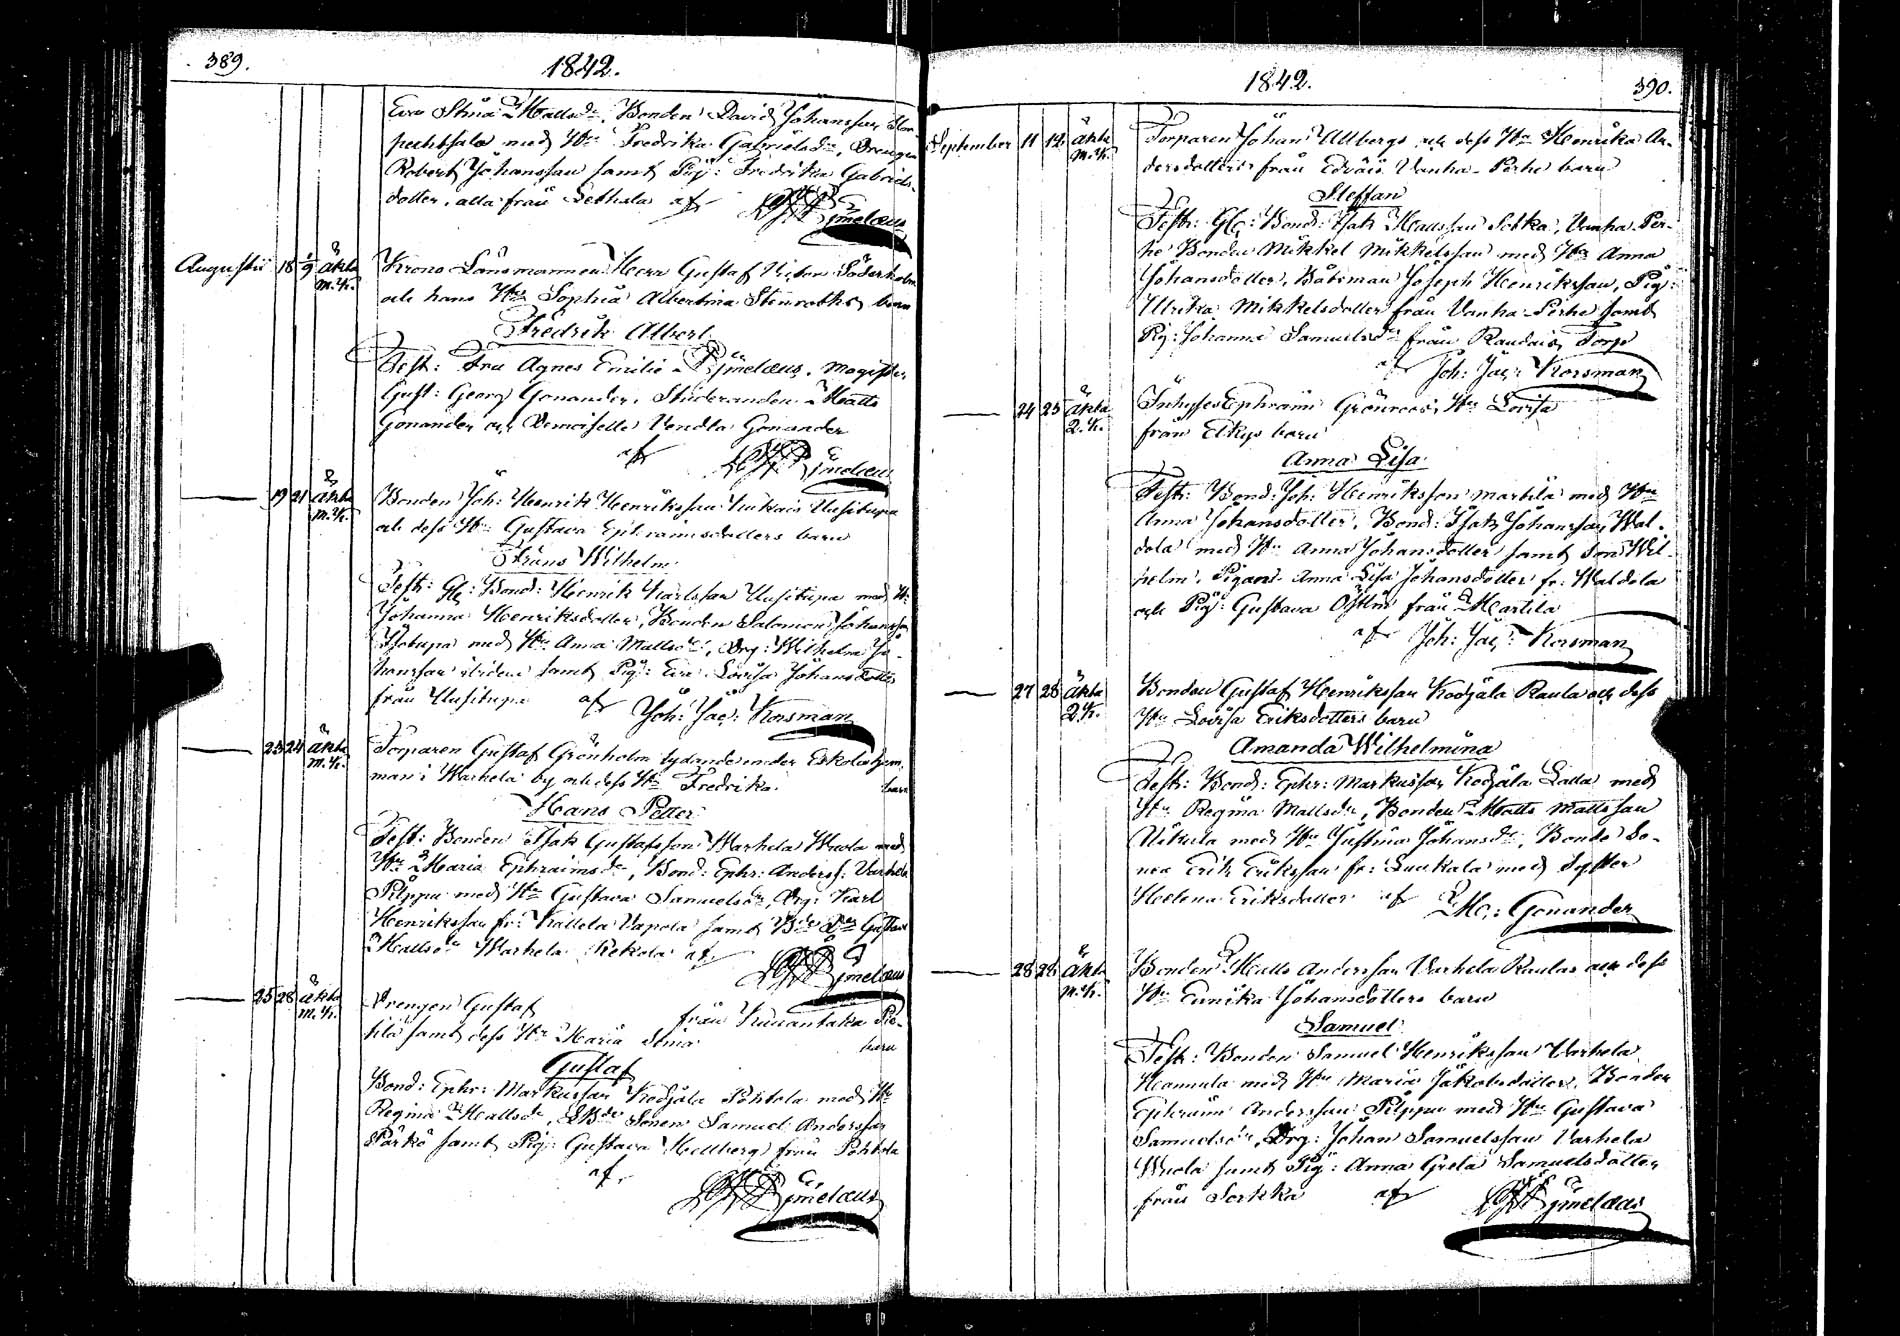 389.
1842.
Eva Stina Mattsdr, Bonden David Johansson
med Hu Fredrika Gabrielsdr, Drengen
Robert Johansson samt Pig: Fredrika Gabriels-
dotter, alla från Sethola af
Augusti 18 1/9 äkta m.k. Krono Länsmannen Herr Gustaf Victor Söderholm
och hans Hu Sophia Albertina Stenroths barn
Fredrik Albert
Test: Fru Agnes Emilie Rymelæus, Magister
Gust: Georg Gonander, Studeranden Matts
Gonander och Demoiselle Vendla Gonander
af Rymelæus
19 21 äkta m.k. Bonden Joh: Henrik Henriksson Uusitupa
och dess Hu Gustava Ephraimsdotters barn
Frans Wilhelm
Test: Gl: Bond: Henrik Karlsson Uusitupa med H:
Johanna Henriksdotter, Bonden Salomon Johansson
Isotupa med Hu Anna Mattsdr, Drg: Wilhelm Jo-
hansson samt Pig: Eva Lovisa Johansdotter
från Uusitupa af Joh: Jac: Korsman
23 24 äkta m.k. Torparen Gustaf Grönholm lydande under Eskola hem-
man i Warhela by och dess Hu Fredrika barn
Hans Petter
Test: Bonden Isak Gustafsson Warhela Wuola med
Hu Maria Ephraimsdr, Bond: Ephr: Anders: Varhela
Pilppu med Hu Gustava Samuelsdr, Drg: Karl
Henriksson fr: Kallela Vapola samt Gustava
Mattsdr Warhela Rekola af Rymelæus
25 28 äkta m.k. Drengen Gustaf från
samt dess Hu Maria Stina barn
Gustaf
Bond: Ephr: Markusson Kodjala Pohtola med Hu
Regina Mattsdr, Sonen Samuel Andersson
Pärkö samt Pig: Gustava Hellberg från Pohtola
af Rymelæus
1842.
390.
September 11 12 äkta m.k. Torparen Johan Allbergs och dess Hu Henrika An-
dersdotters från Edväis Vanha-Perhe barn
Steffan
Test: Gl: Bond: Isak Mattsson Sotka, Vanha Per-
he Bonden Mikkel Mikkelsson med Hu Anna
Johansdotter, Båtsman Joseph Henriksson, Pig:
Ulrika Mikkelsdotter från Vanha-Perhe samt
Pig: Johanna Samuelsdr från Raudais Torp
af Joh: Jac: Korsman
24 25 äkta 2.k. Inhyses Ephraim Grönroos, Hu Lovisa
från Elkyo barn
Anna Lisa
Test: Bond: Joh: Henriksson Martila med Hu
Anna Johansdotter, Bond: Isak Johansson Wal-
dola med Hu Anna Johansdotter samt son Wil-
helm, Pigan Anna Lisa Johansdotter fr: Waldola
och Pig: Gustava Östlin från Martila
af Joh: Jac: Korsman
27 28 äkta 2.k. Bonden Gustaf Henriksson Kodjala Raula och dess
Hu Lovisa Eriksdotters barn
Amanda Wilhelmina
Test: Bond: Ephr: Markusson Kodjala Lalla med
Hu Regina Mattsdr, Bonden Matts Mattsson
Nikula med Hu Justina Johansdr, Bonde So-
nen Erik Eriksson fr: Luukala med Syster
Helena Eriksdotter af M.: Gonander
28 28 äkta m.k. Bonden Matts Andersson Varhela Raulas och dess
Hu Ennika Johansdotters barn
Samuel
Test: Bonden Samuel Henriksson Varhela
Hannula med Hu Maria Jakobsdotter, Bonden
Ephraim Andersson Pilppu med Hu Gustava
Samuelsdr, Drg: Johan Samuelsson Varhela
Wuola samt Pig: Anna Greta Samuelsdotter
från Sorkka af Rymelæus